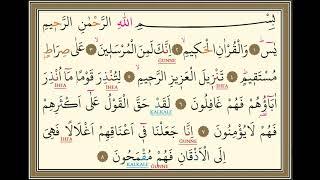 بِسْمِ اللهِ الرَّحْمٰنِ الرَّحِيمِ
يٰسٓ ١ وَالْقُرْاٰنِ الْحَكِيمِ ٢ اِنَّكَ لَمِنَ الْمُرْسَلِينَ ٣ عَلٰى صِرَاطٍ
GUNNE
مُسْتَقِيمٍ ٤ تَنْزِيلَ الْعَزِيزِ الرَّحِيمِ ٥ لِتُنْذِرَ قَوْمًا مَٓا اُنْذِرَ
İHFA İHFA İHFA
اٰبَٓاؤُهُمْ فَهُمْ غَافِلُونَ ٦ لَقَدْ حَقَّ الْقَوْلُ عَلٰٓى اَكْثَرِهِمْ
KALKALE
فَهُمْ لَا يُؤْمِنُونَ ٧ اِنَّا جَعَلْنَا فٓى اَعْنَاقِهِمْ اَغْلَالًا فَهِىَ
GUNNE İHFA
اِلَى الْاَذْقَانِ فَهُمْ مُقْمَحُونَ ٨
KALKALE GUNNE